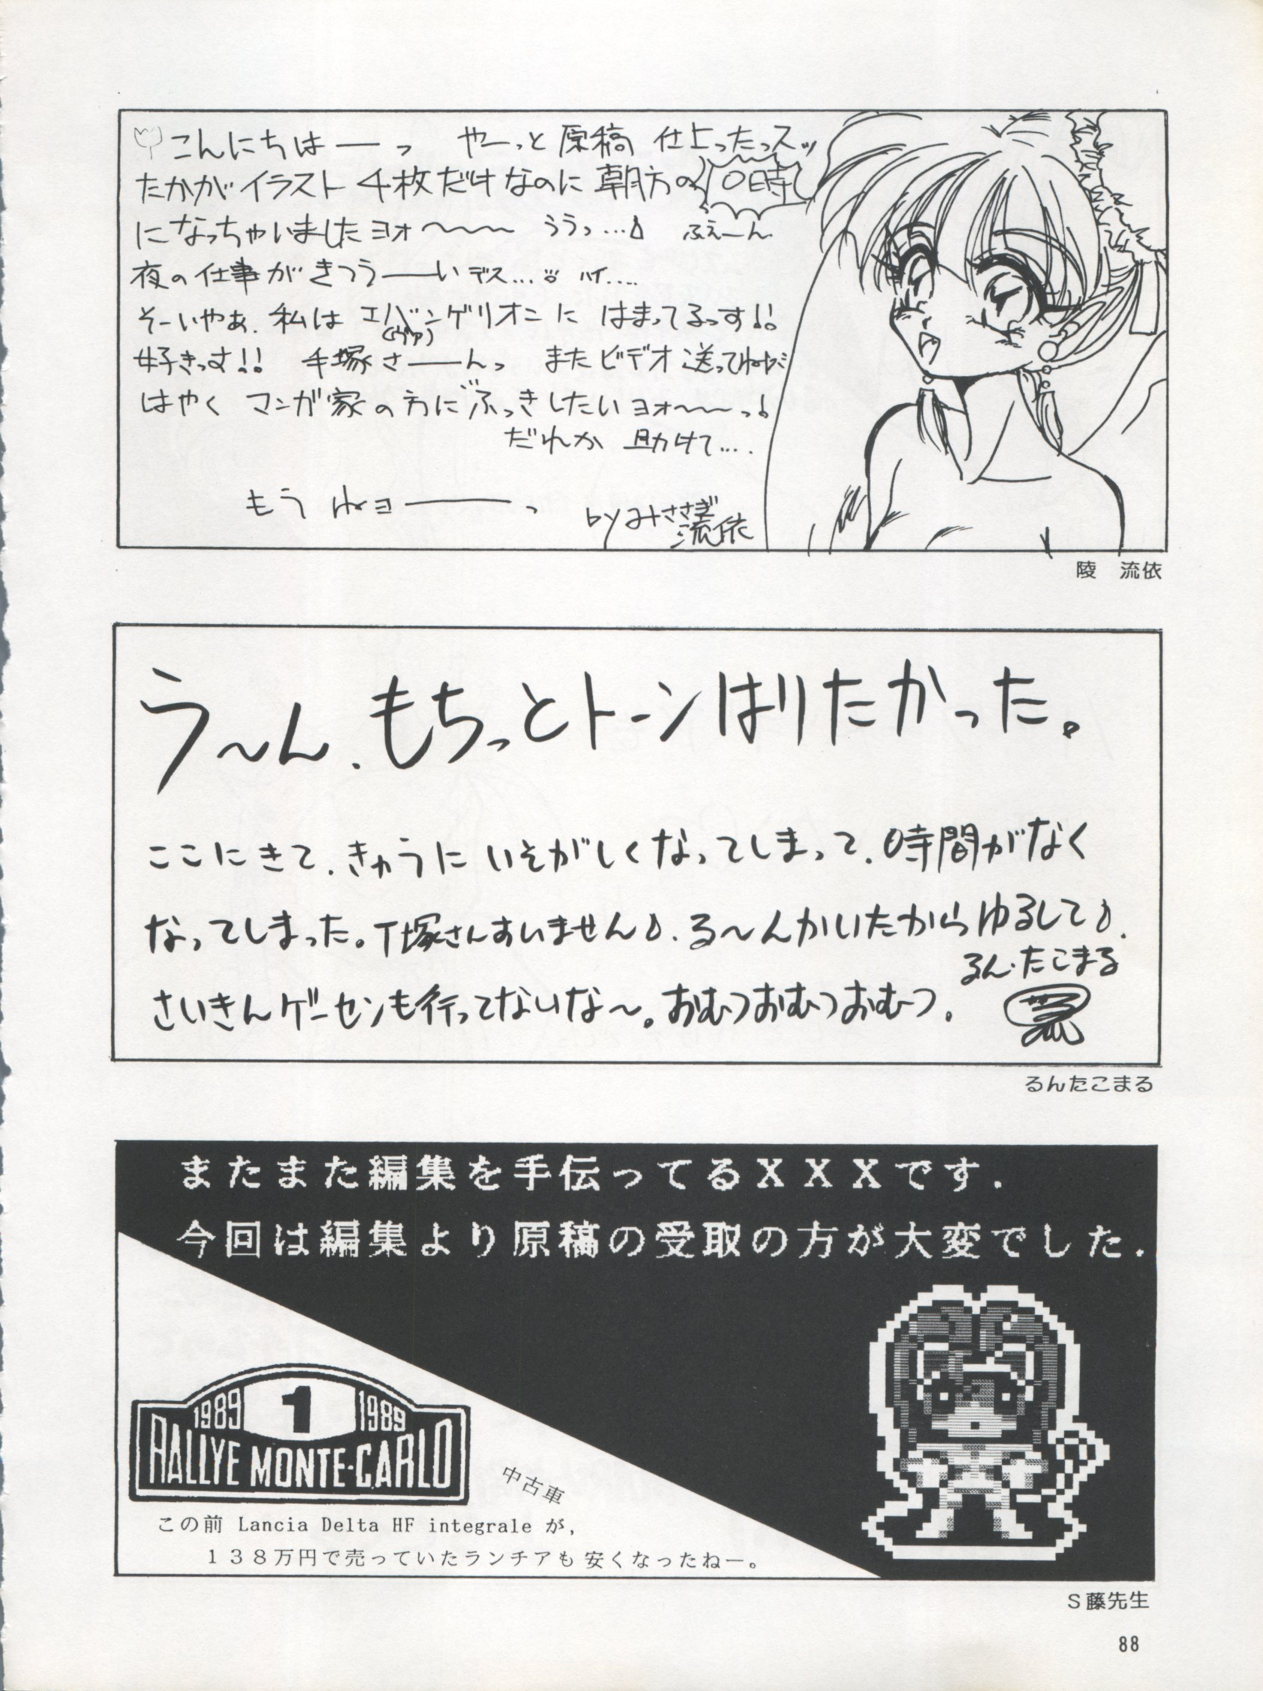 こんにちはーっ やーっと原稿 仕上ったっスッ
たかがイラスト 4枚だけなのに 朝方の10時
になっちゃいましたヨォ〜〜〜 ううっ…♪ ふぇーん
夜の仕事がきつうーいデス… ハイ….
そーいやぁ、私は エバンゲリオンに はまってるっす!!
(ヴァ)
好きっす!! 手塚さーんっ またビデオ送ってねだ
はやく マンガ家の方にふっきしたいヨォ〜〜っ♪
だれか 助けて….
もう ねョーーっ
by みささぎ
流依
陵 流依
う〜ん、もちっとトーンはりたかった。
ここにきて、きゅうにいそがしくなってしまって、時間がなく
なってしまった。T塚さんすいません♪、る〜んかいたからゆるして♪.
るん・たこまる
さいきんゲーセンも行ってないな〜。おむつおむつおむつ。
るんたこまる
またまた編集を手伝ってるXXXです.
今回は編集より原稿の受取の方が大変でした.
1989 1 1989
RALLYE MONTE-CARLO
中古車
この前 Lancia Delta HF integrale が,
138万円で売っていたランチアも安くなったねー。
S藤先生
88